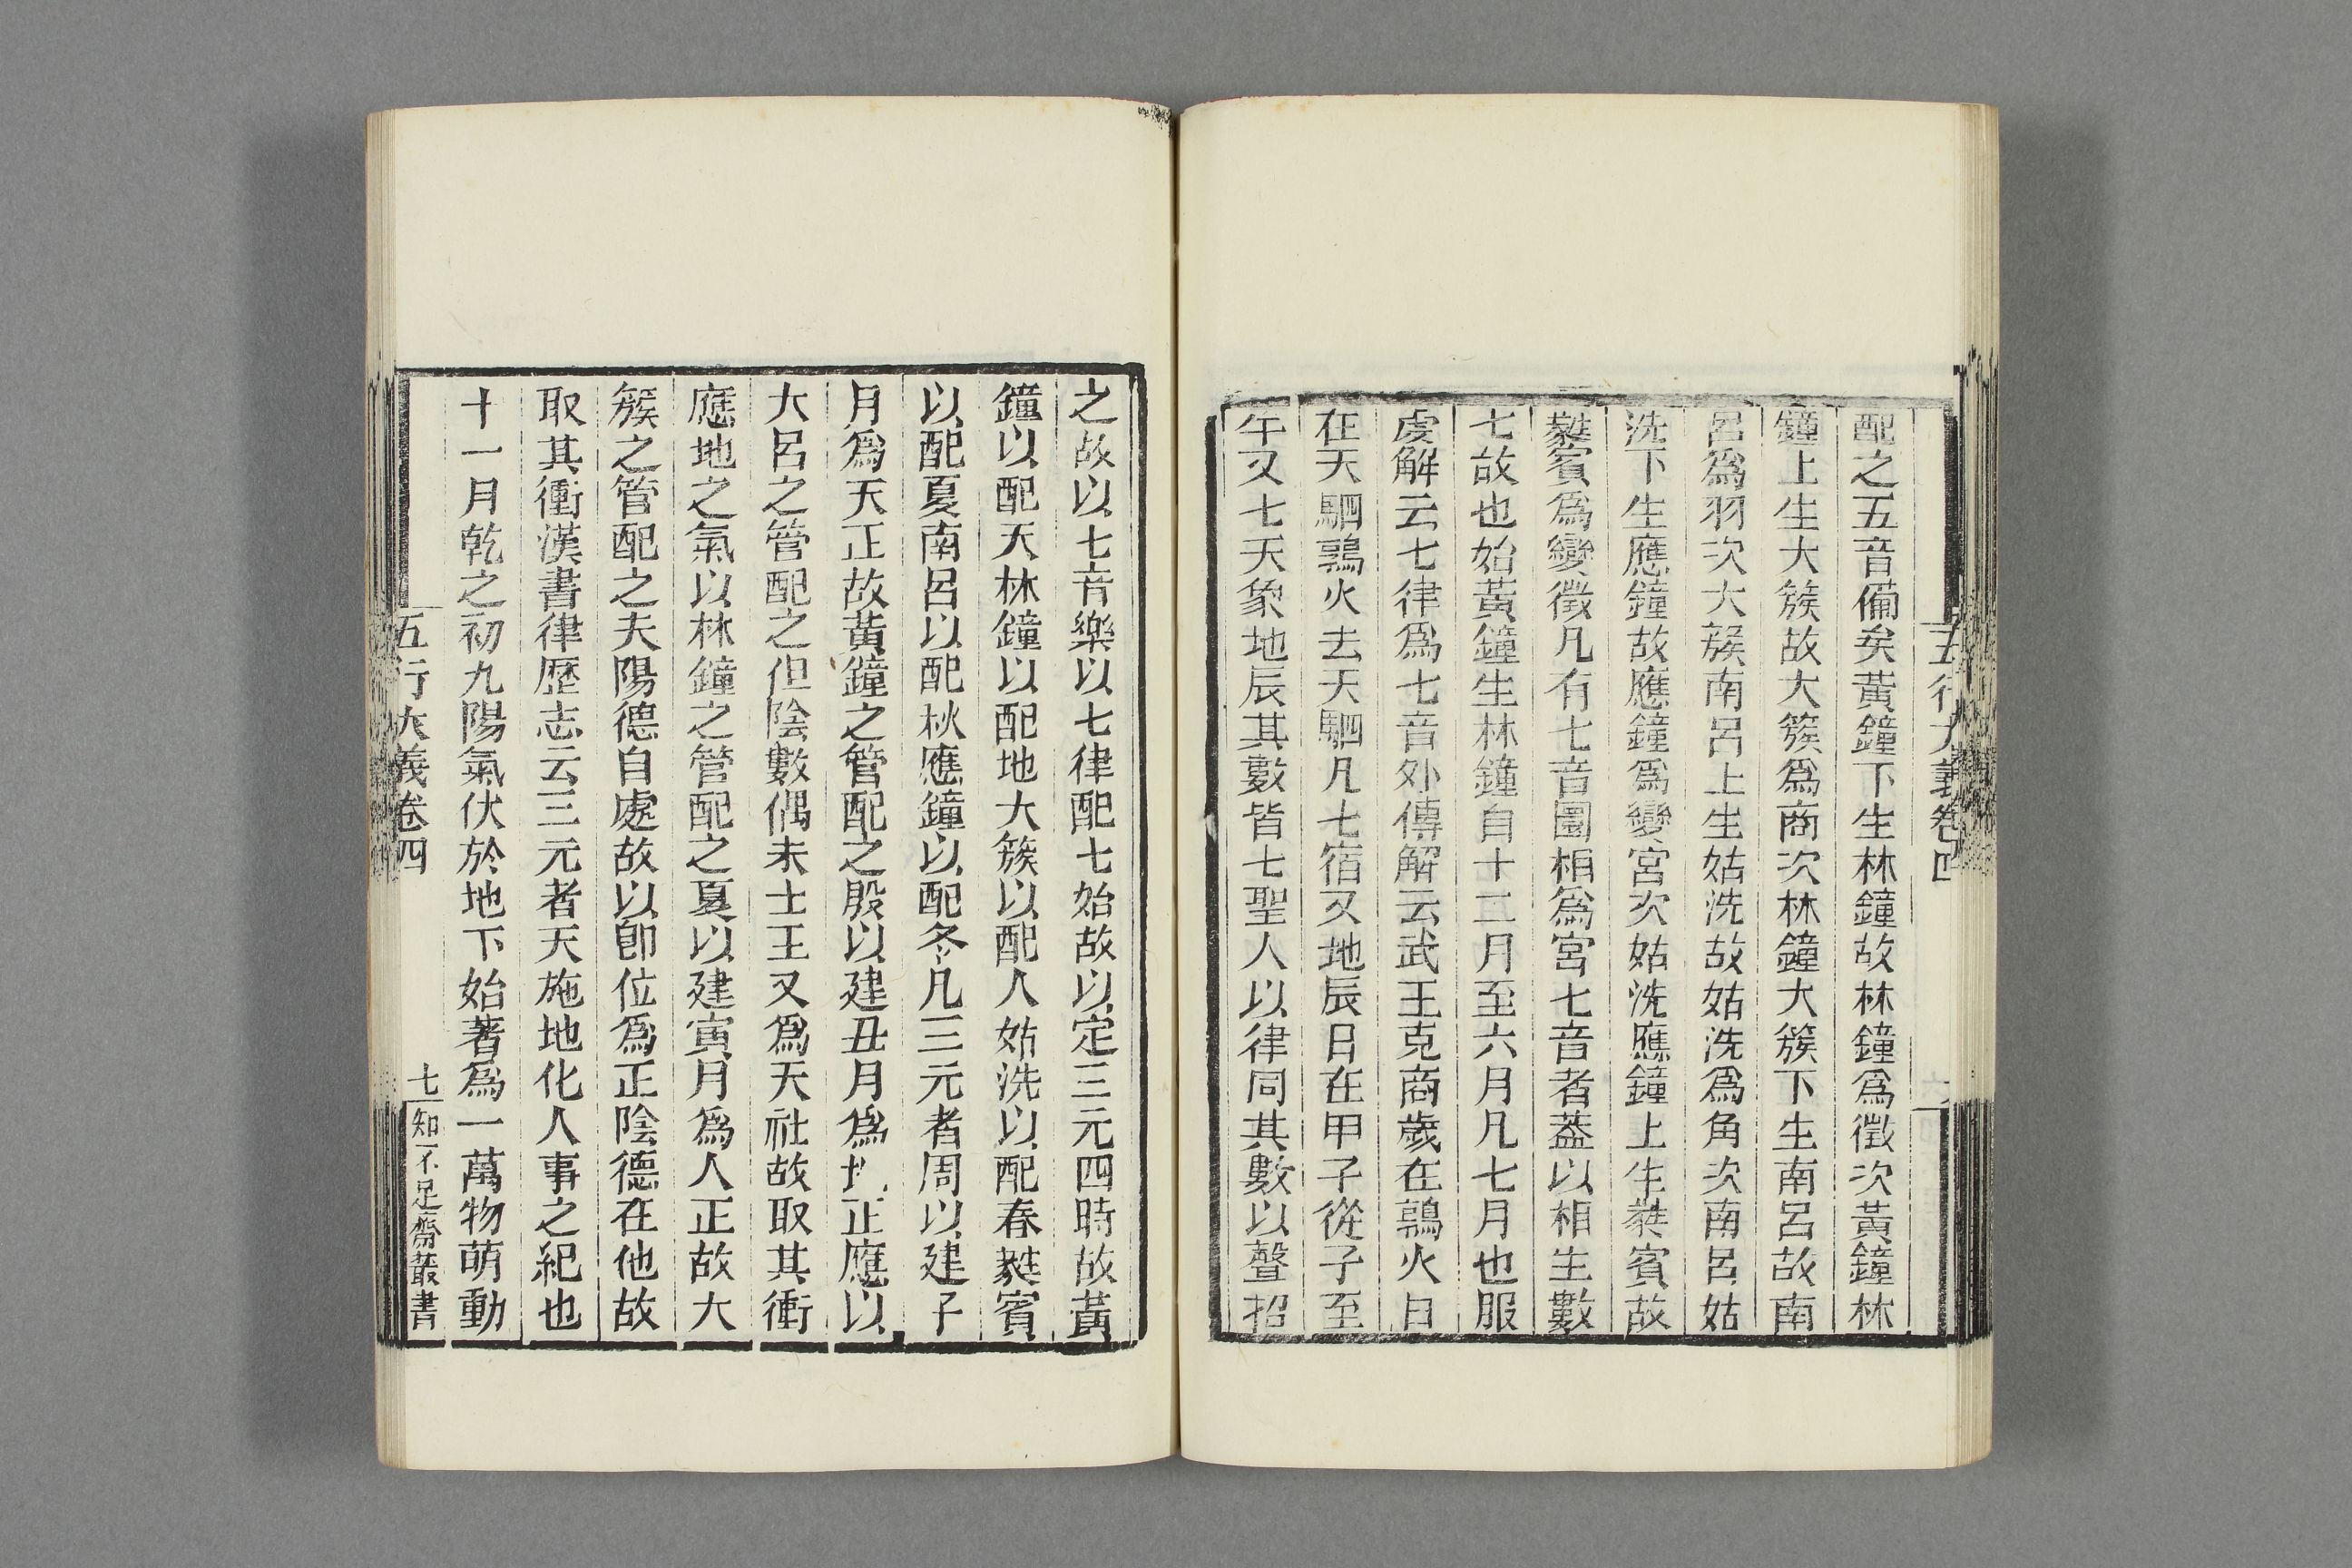 五行大義卷四
配之五音備矣黃鐘下生林鐘故林鐘爲徵次黃鐘林
鐘上生大簇故大簇爲商次林鐘大簇下生南呂故南
呂爲羽次大簇南呂上生姑洗故姑洗爲角次南呂姑
洗下生應鐘故應鐘爲變宮次姑洗應鐘上生蕤賓故
蕤賓爲變徵凡有七音圖相爲宮七音者蓋以相生數
七故也始黃鐘生林鐘自十二月至六月凡七月也服
虔解云七律爲七音外傳解云武王克商歲在鶉火日
在天駟鶉火去天駟凡七宿又地辰日在甲子從子至
午又七天象地辰其數皆七聖人以律同其數以聲招
之故以七音樂以七律配七始故以定三元四時故黃
鐘以配天林鐘以配地大簇以配人姑洗以配春蕤賓
以配夏南呂以配秋應鐘以配冬凡三元者周以建子
月爲天正故黃鐘之管配之殷以建丑月爲地正應以
大呂之管配之但陰數偶未土王又爲天社故取其衝
應地之氣以林鐘之管配之夏以建寅月爲人正故大
簇之管配之夫陽德自處故以卽位爲正陰德在他故
取其衝漢書律歷志云三元者天施地化人事之紀也
十一月乾之初九陽氣伏於地下始著爲一萬物萌動
五行大義卷四
七
知不足齋叢書